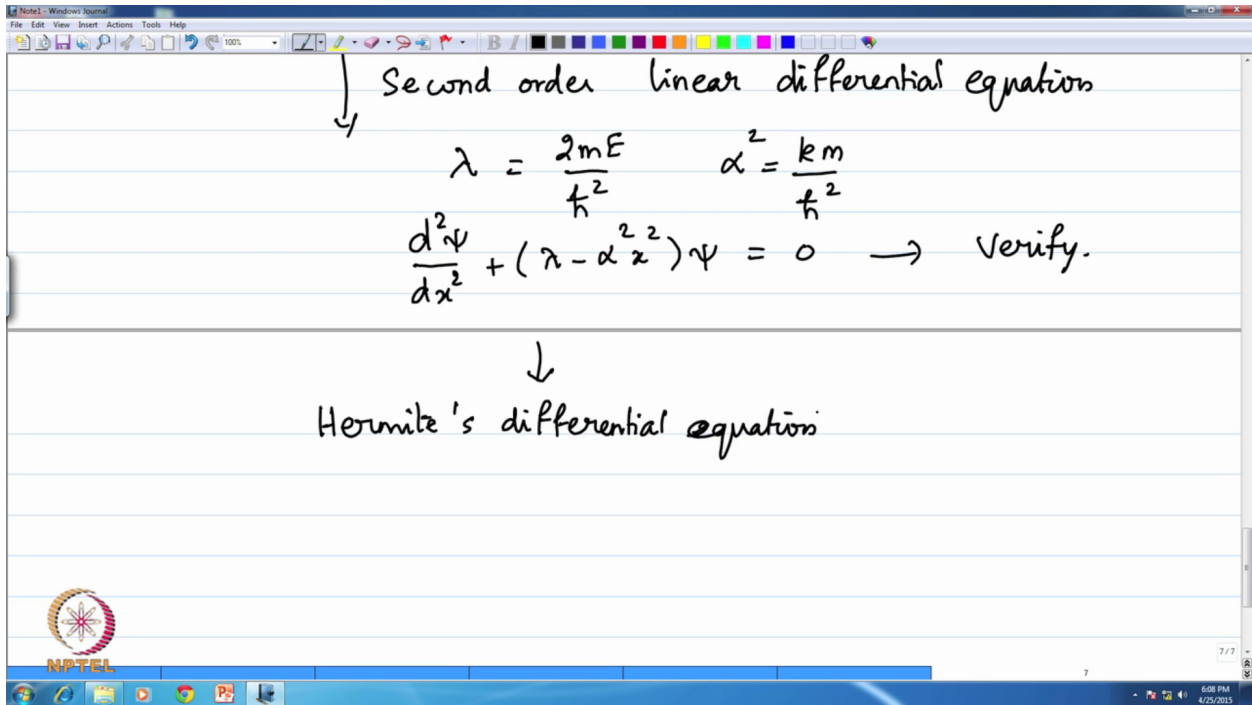 Note1 - Windows Journal
File Edit View Insert Actions Tools Help
100%
B I
Second order linear differential equation
λ = 2mE/ħ² α² = km/ħ²
d²ψ/dx² + (λ - α²x²)ψ = 0 → Verify.
↓
Hermite's differential equation
NPTEL
7/7
7
6:08 PM
4/25/2015